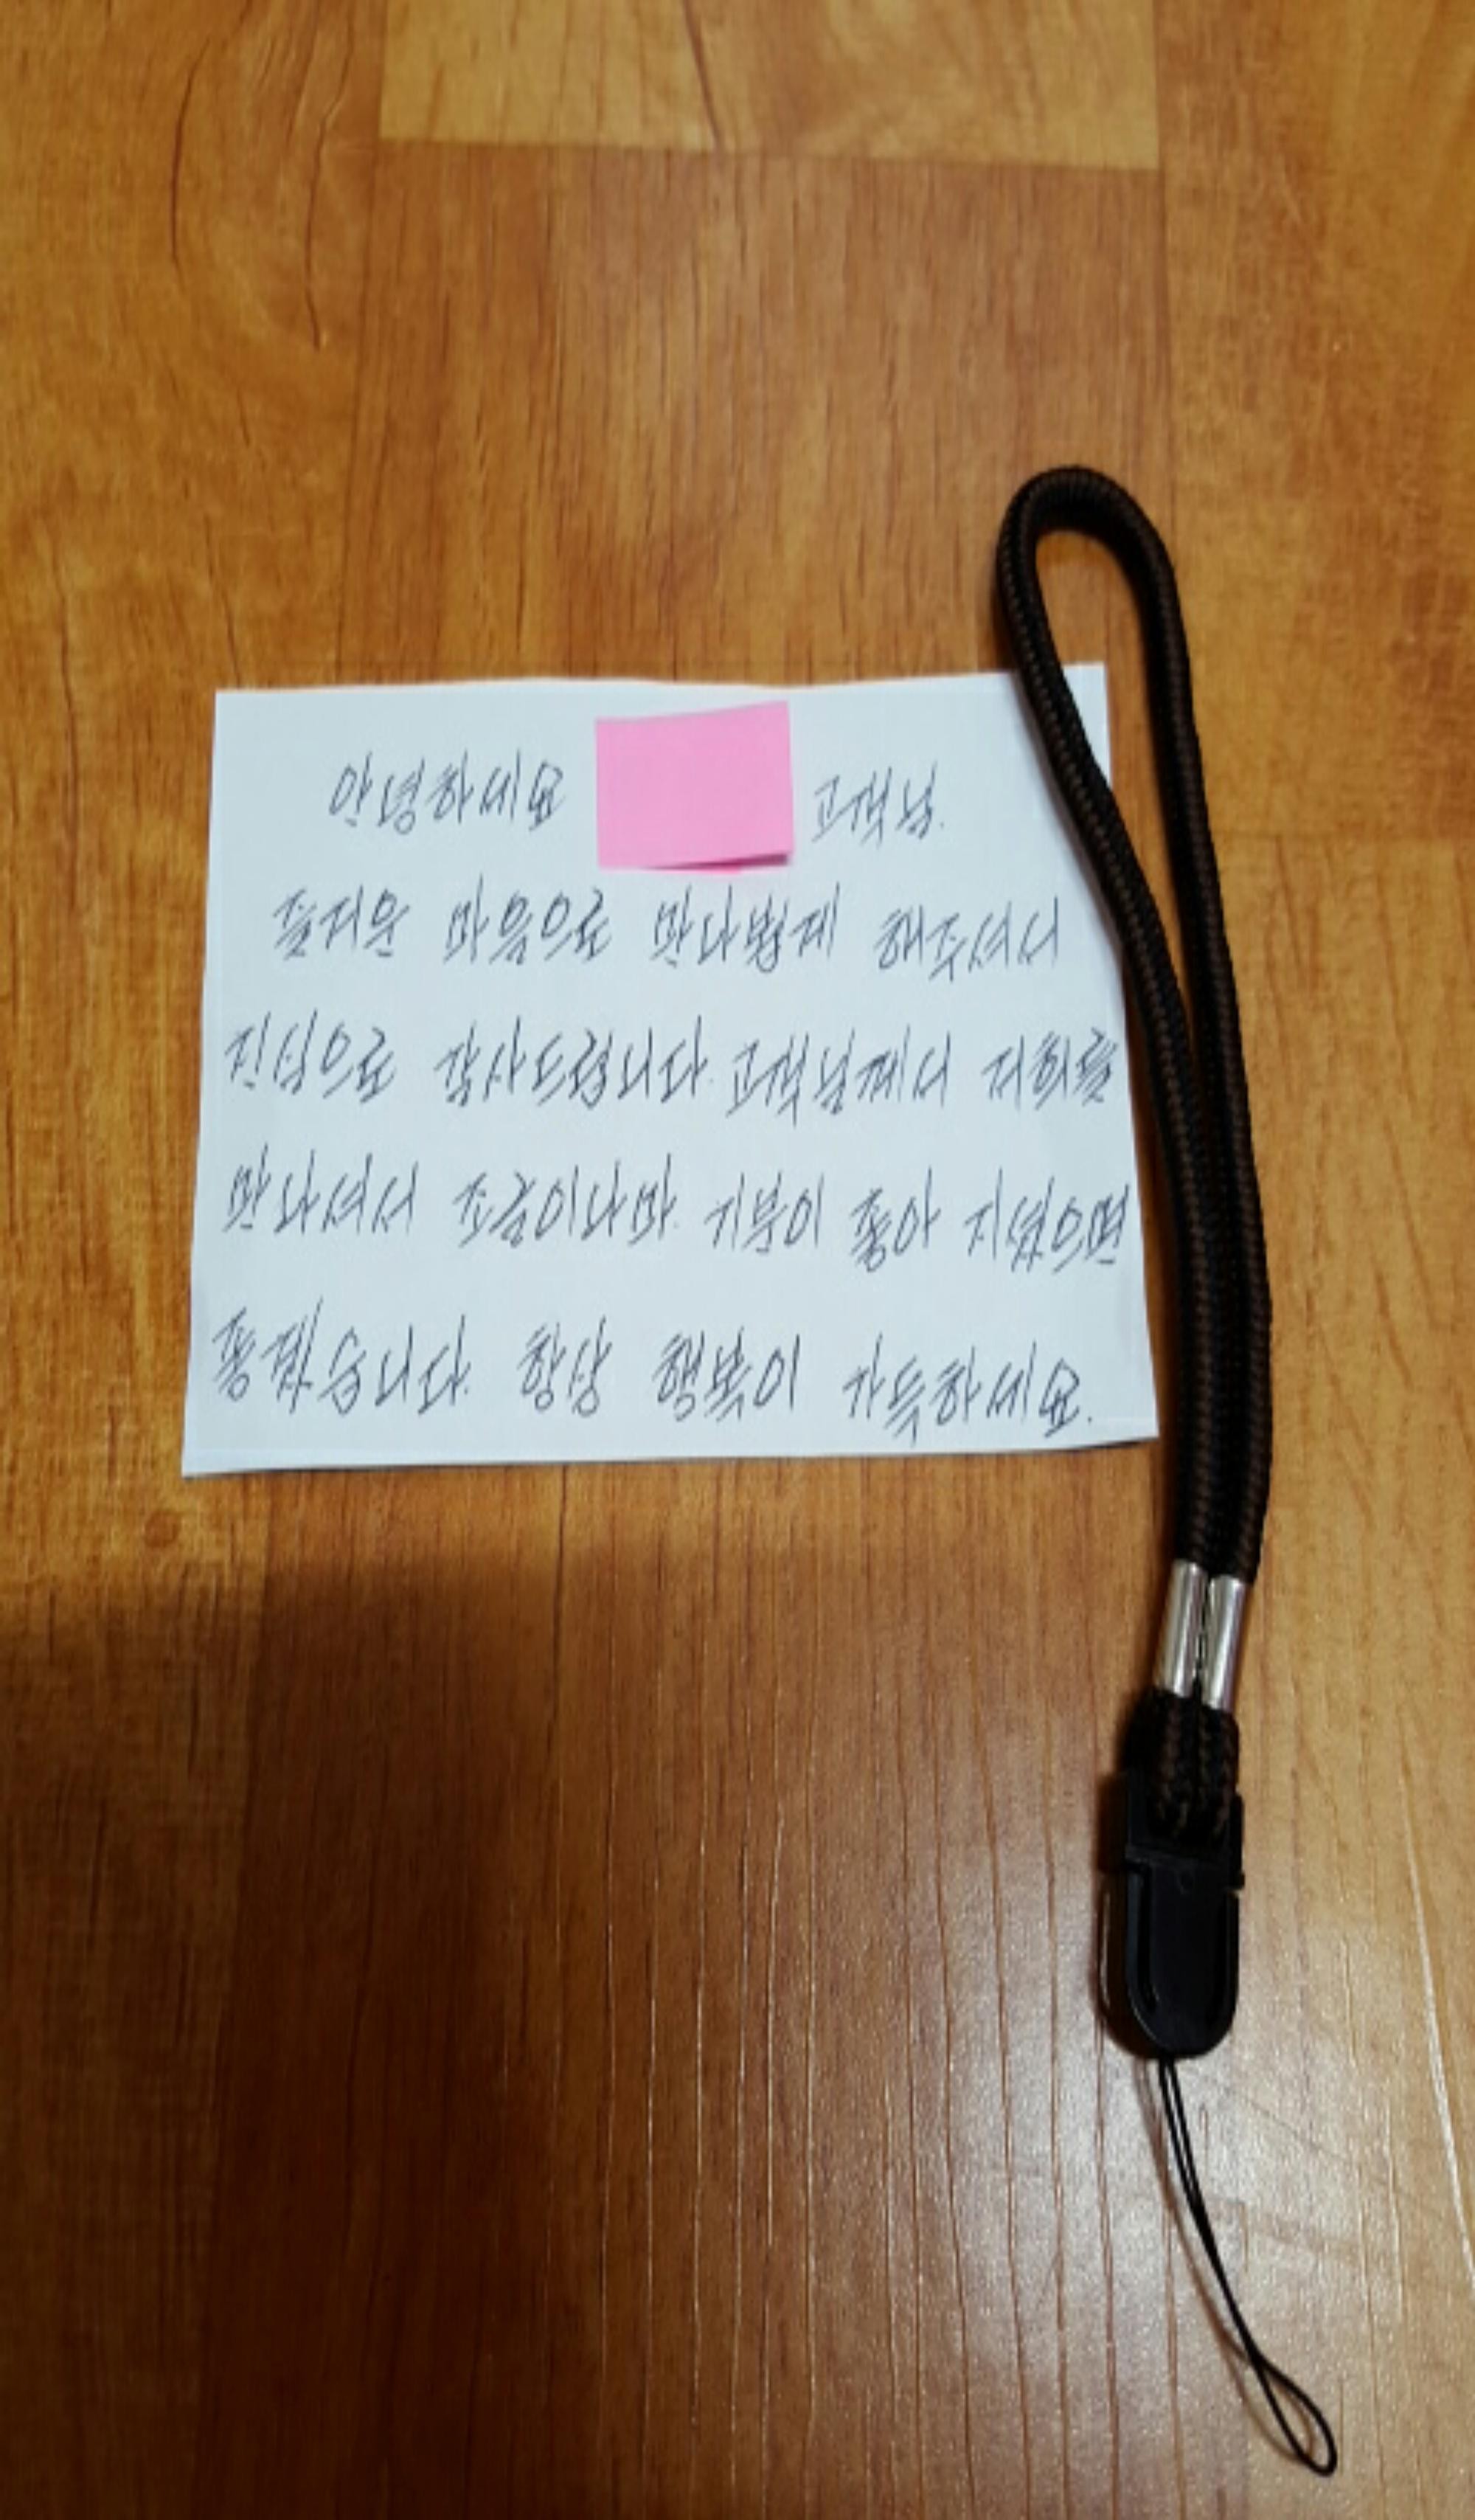 안녕하세요 고객님.
즐거운 마음으로 만나뵙게 해주셔서
진심으로 감사드립니다. 고객님께서 저희를
만나셔서 조금이나마 기분이 좋아 지셨으면
좋겠습니다. 항상 행복이 가득하세요.